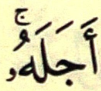 أَجَلَهُۥۚ